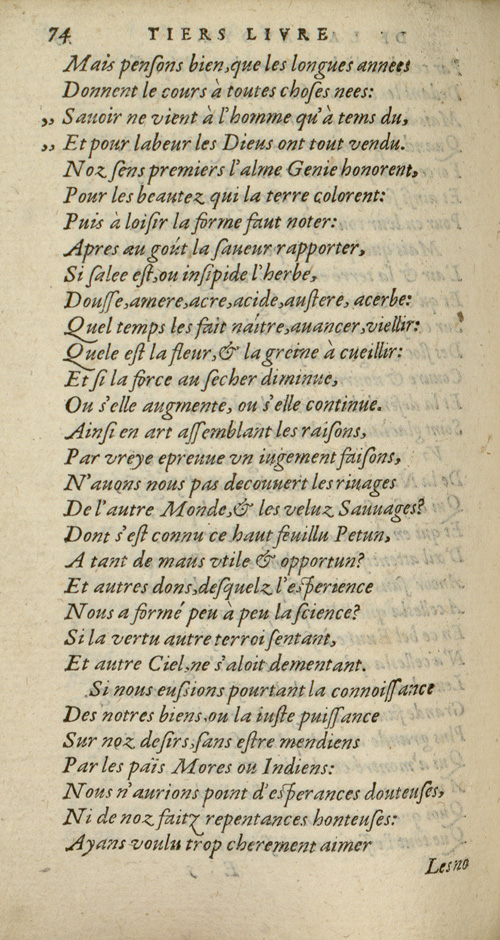 74 TIERS LIVRE
Mais penſons bien, que les longues annees
Donnent le cours à toutes choſes nees:
„ Sauoir ne vient à l'homme qu'à tems du,
„ Et pour labeur les Dieus ont tout vendu.
Noz ſens premiers l'alme Genie honorent,
Pour les beautez qui la terre colorent:
Puis à loiſir la forme faut noter:
Apres au goút la ſaueur rapporter,
Si ſalee eſt, ou inſipide l'herbe,
Douſſe, amere, acre, acide, auſtere, acerbe:
Quel temps les fait naítre, auancer, viellir:
Quele eſt la fleur, & la greine à cueillir:
Et ſi la force au ſecher diminue,
Ou s'elle augmente, ou s'elle continue.
Ainſi en art aſſemblant les raiſons,
Par vreye epreuue vn iugement faiſons,
N'auons nous pas decouuert les riuages
De l'autre Monde, & les veluz Sauuages?
Dont s'eſt connu ce haut feuillu Petun,
A tant de maus vtile & opportun?
Et autres dons, deſquelz l'eſperience
Nous a formé peu à peu la ſcience?
Si la vertu autre terroi ſentant,
Et autre Ciel, ne s'aloit dementant.
Si nous euſsions pourtant la connoiſſance
Des notres biens, ou la iuſte puiſſance
Sur noz deſirs, ſans eſtre mendiens
Par les païs Mores ou Indiens:
Nous n'aurions point d'eſperances douteuſes,
Ni de noz faitz repentances honteuſes:
Ayans voulu trop cherement aimer
Les no